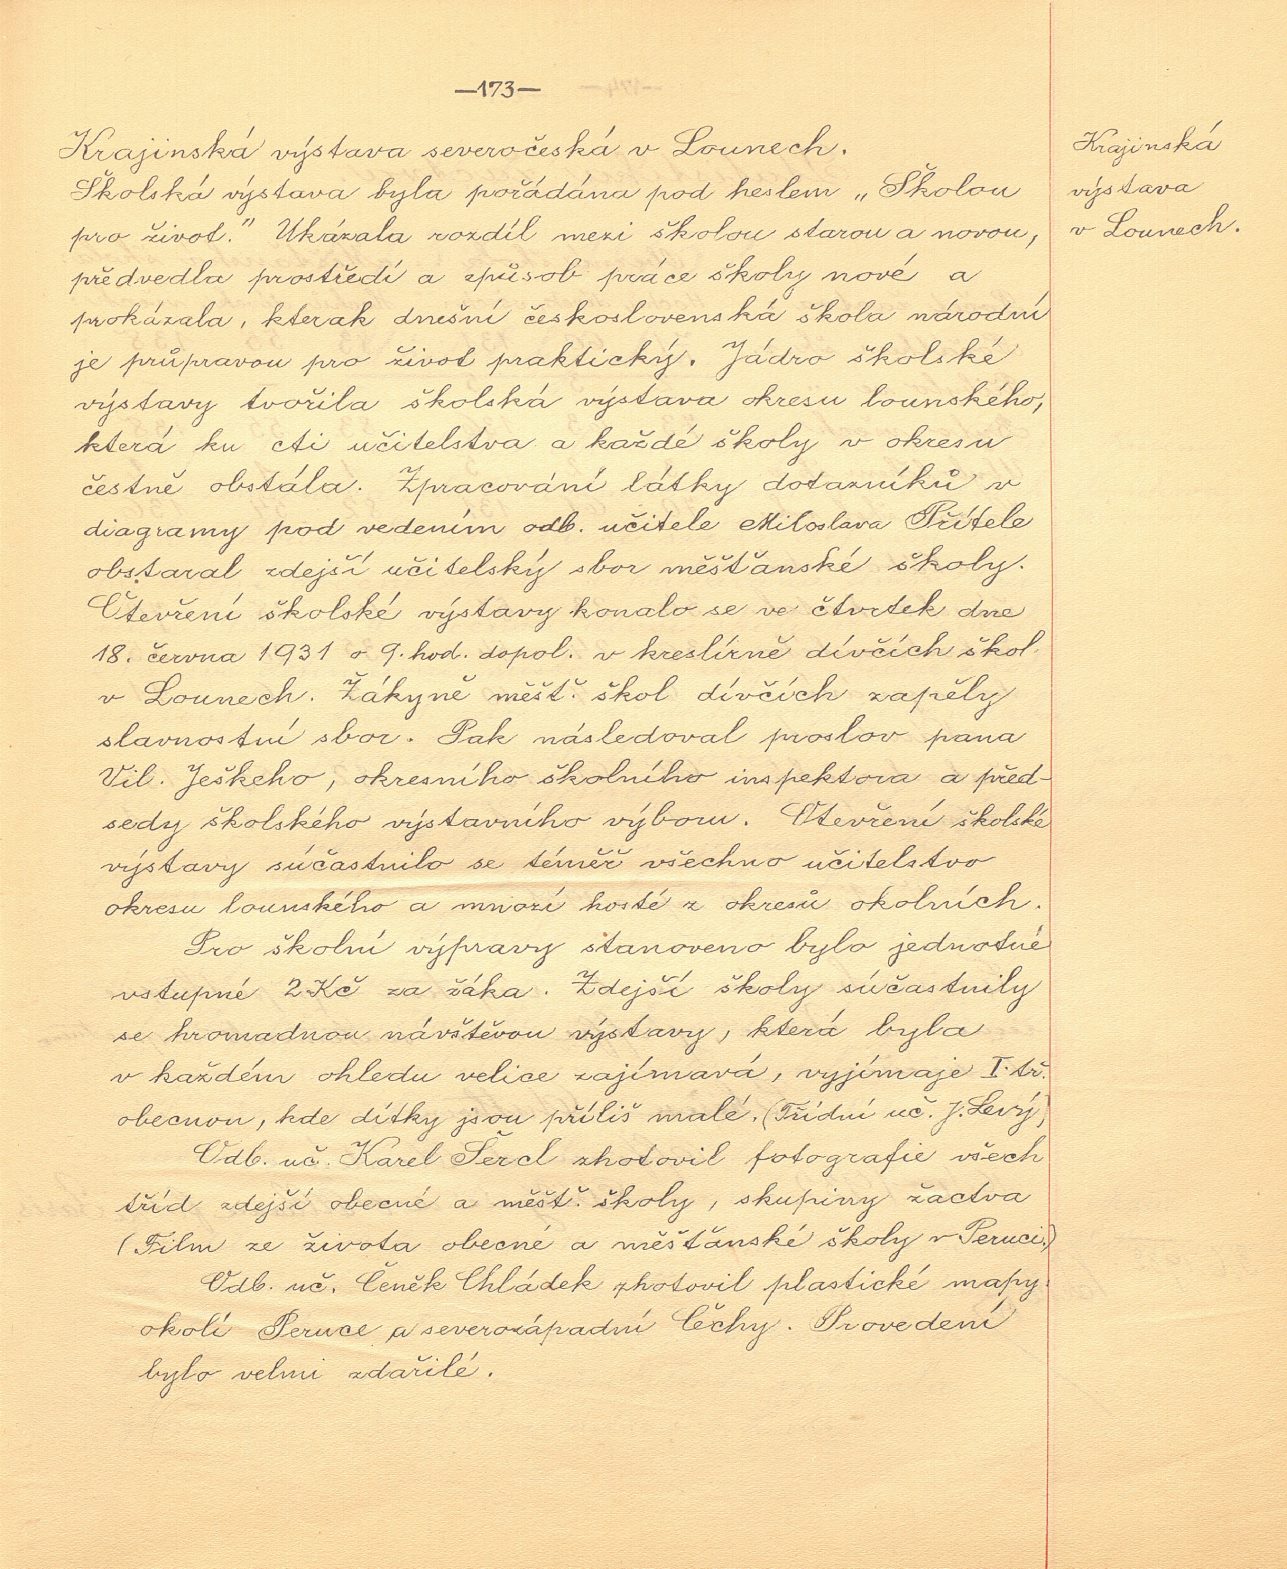 —173—
Krajinská výstava severočeská v Lounech.
Školská výstava byla pořádána pod heslem „Školou
pro život.” Ukázala rozdíl mezi školou starou a novou,
předvedla prostředí a způsob práce školy nové a
prokázala, kterak dnešní československá škola národní
je průpravou pro život praktický. Jádro školské
výstavy tvořila školská výstava okresu lounského,
která ku cti učitelstva a každé školy v okresu
čestně obstála. Zpracování látky dotazníků v
diagramy pod vedením odb. učitele Miloslava Přítele
obstaral zdejší učitelský sbor měšťanské školy.
Otevření školské výstavy konalo se ve čtvrtek dne
18. června 1931 o 9. hod. dopol. v kreslírně dívčích škol
v Lounech. Žákyně měšť. škol dívčích zapěly
slavnostní sbor. Pak následoval proslov pana
Vil. Ješkeho, okresního školního inspektora a před-
sedy školského výstavního výboru. Otevření školské
výstavy súčastnilo se téměř všechno učitelstvo
okresu lounského a mnozí hosté z okresů okolních.
Pro školní výpravy stanoveno bylo jednotné
vstupné 2 Kč za žáka. Zdejší školy súčastnily
se hromadnou návštěvou výstavy, která byla
v každém ohledu velice zajímavá, vyjímaje I. tř.
obecnou, kde dítky jsou příliš malé. (Třídní uč. J. Levý)
Odb. uč. Karel Šercl zhotovil fotografie všech
tříd zdejší obecné a měšť. školy, skupiny žactva
(Film ze života obecné a měšťanské školy v Peruci.)
Odb. uč. Čeněk Chládek zhotovil plastické mapy
okolí Peruce a severozápadní Čechy. Provedení
bylo velmi zdařilé.
Krajinská
výstava
v Lounech.